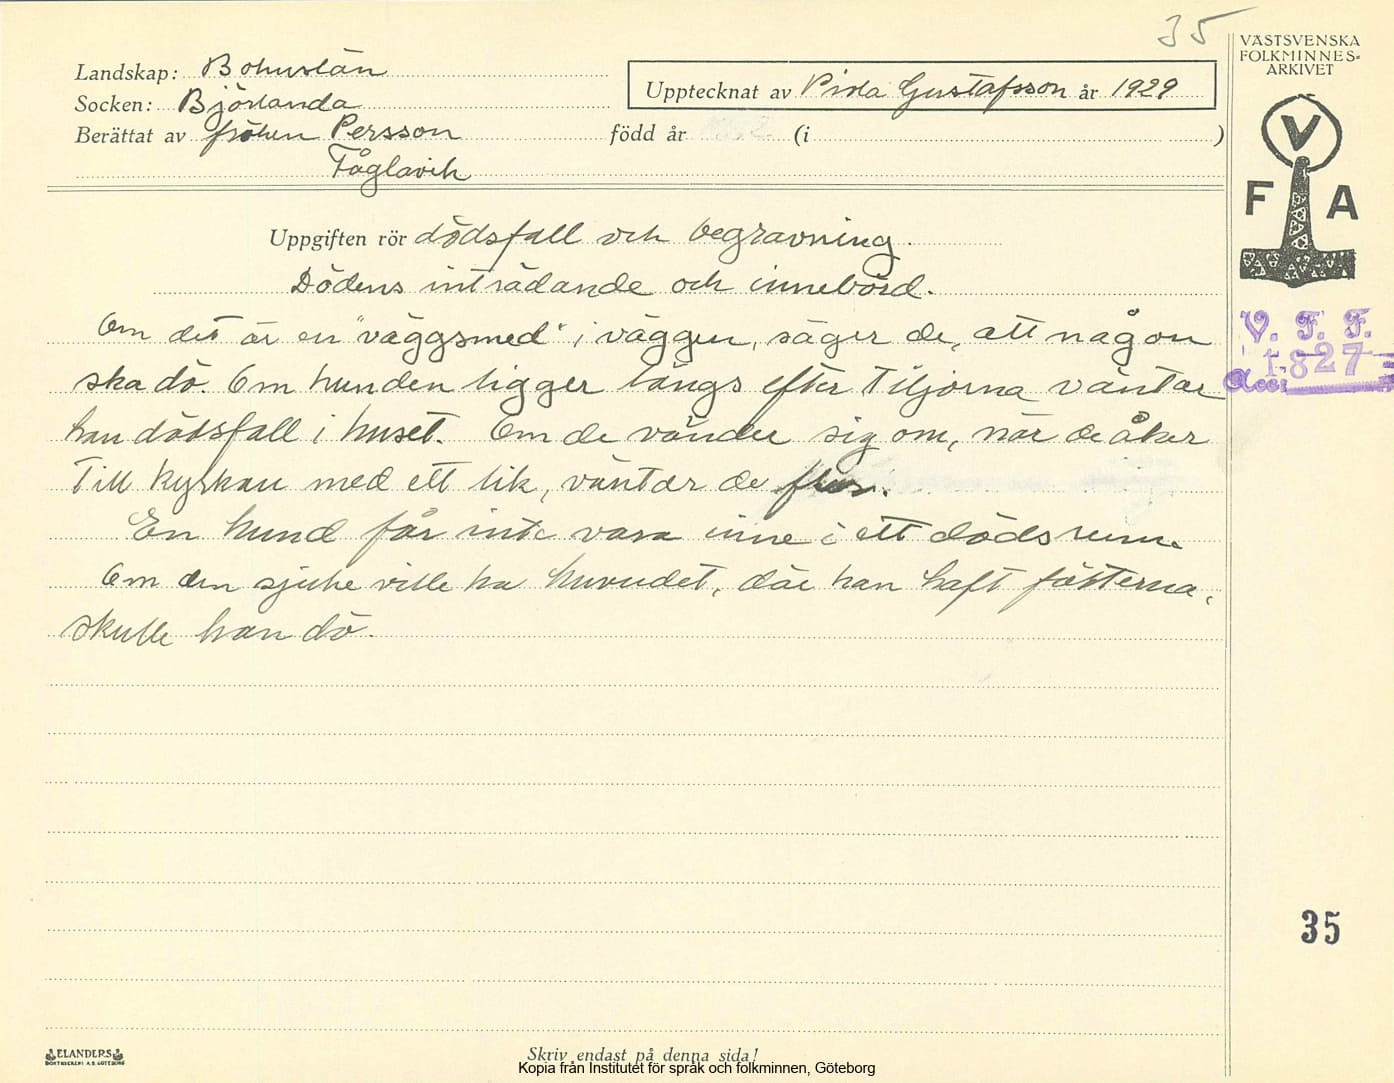 35
VÄSTSVENSKA
FOLKMINNES-
ARKIVET
Landskap: Bohuslän
Socken: Björlanda
Upptecknat av Gustafsson år 1929
Berättat av fröken Persson född år (i )
Fåglavik
V
F A
Uppgiften rör dödsfall och begravning
Dödens inträdande och innebörd.
Om det är en "väggsmed" i väggen, säger de, att någon
ska dö. Om hunden ligger längs efter tiljorna väntar
han dödsfall i huset. Om de vänder sig om, när de åker
till kyrkan med ett lik, väntar de fler.
En hund får inte vara inne i ett dödsrum.
Om den sjuke ville ha huvudet, där han haft fötterna,
skulle han dö.
V. F. F.
1827
Acc:
35
ELANDERS
BOKTRYCKERI A.B. GÖTEBORG
Skriv endast på denna sida!
Kopia från Institutet för språk och folkminnen, Göteborg